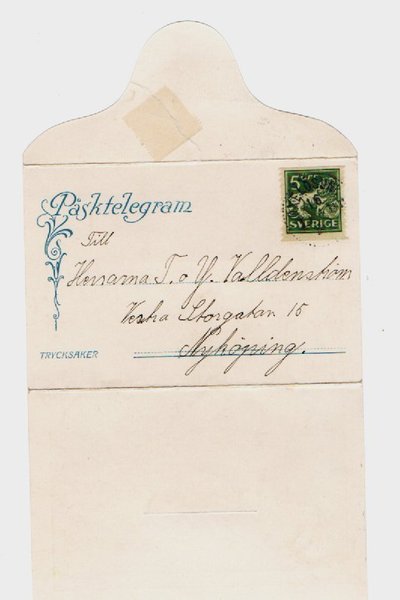 Påsktelegram
5
SVERIGE
Till
Herrarna T. o Y. Walldenström
Vestra Storgatan 15
Nyköping.
TRYCKSAKER